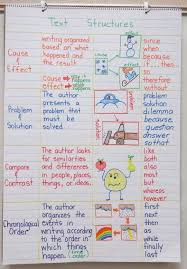 Text Structures
Cause
&
Effect
writing organized
based on what
happened and
the result
cause
effect
Cause → Effect
since
when
because
therefore
if...then
so
Problem
&
Solution
The author
presents a
problem
that must
be solved
problem
solution
dilemma
because
question
answer
so that
Compare
&
Contrast
The author looks
for similarities
and differences
in people, places,
things, or ideas.
like
both
also
most
but
whereas
however
Chronological
Order
The author
organizes the
events in
writing according
to the order in
which things
happen.
first
next
then
as
while
finally
last